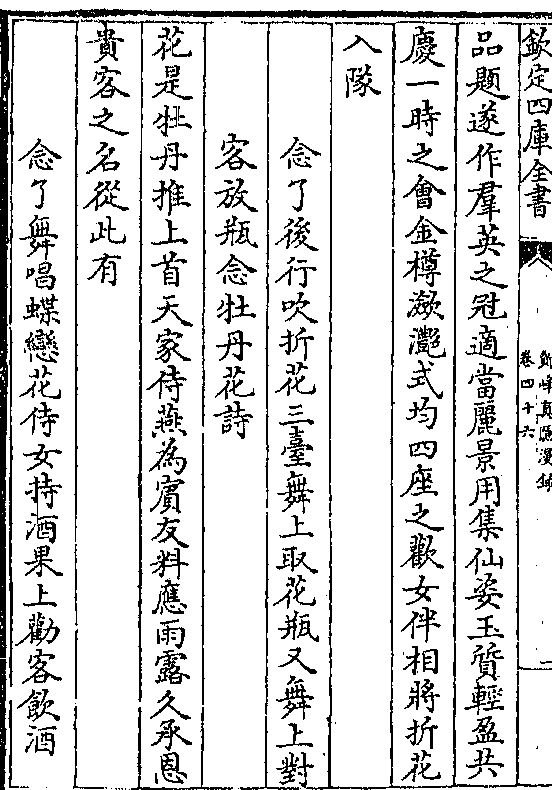 欽定四庫全書
鄮峰真隱漫錄
卷四十六
品題遂作羣英之冠適當麗景用集仙姿玉質輕盈共
慶一時之會金樽瀲灔式均四座之歡女伴相將折花
入隊
念了後行吹折花三臺舞上取花瓶又舞上對
客放瓶念牡丹花詩
花是牡丹推上首天家侍燕為賔友料應雨露久承恩
貴客之名從此有
念了舞唱蝶戀花侍女持酒果上勸客飲酒